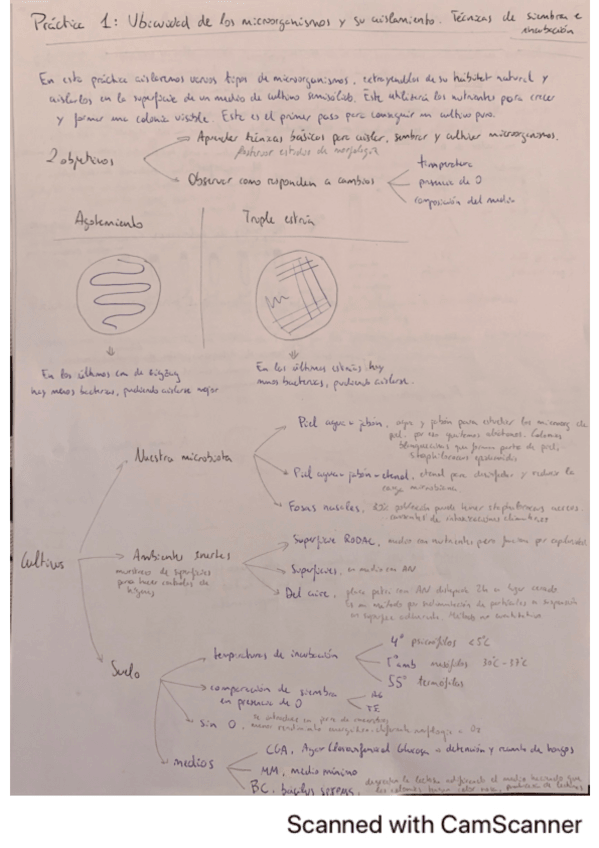 Práctica 1: Ubicuidad de los microorganismos y su aislamiento. Técnicas de siembra e
incubación
En esta práctica aislaremos varios tipos de microorganismos, extrayendolos de su hábitat natural y
aislarlos en la superficie de un medio de cultivo semisólido. Este utilizará los nutrientes para crecer
y formar una colonia visible. Este es el primer paso para conseguir un cultivo puro.
2 objetivos
Aprender técnicas básicas para aislar, sembrar y cultivar microorganismos.
Posterior estudios de morfología
Observar como responden a cambios
temperatura
presencia de O
composición del medio
Agotamiento
Triple estría
En los últimos de zigzag
hay menos bacterias, pudiendo aislarse mejor
En las últimas estrías hay
menos bacterias, pudiendo aislarse.
Cultivos
Nuestra microbiota
Piel agua + jabón, agua y jabón para estudiar los microorg de
piel. Colonias
blanquecinas que forman parte de piel,
staphilococcus epidermidis
Piel agua + jabón + etanol, etanol para desinfectar y reducir la
carga microbiana
Fosas nasales, población puede tener staphilococcus aureus,
causantes de intoxicaciones alimentares
Ambientes inertes
muestreo de superficies
para hacer controles de
higiene
Superficie RODAC, medio con nutrientes para
Superficies, en medio con AN
Del aire, placa petri con AN destapada 2h en lugar cerrado
Es un método por sedimentación de partículas en suspensión
en superficie Método no cuantitativo
Suelo
temperaturas de incubación
4° psicrófilos <5°C
T°amb mesófilos 30°C - 37°C
55° termófilos
comparación de siembra
en presencia de O
AG
TE
sin O
menor rendimiento energético, diferente morfología
medios
CGA, Agar Cloranfenicol Glucosa → detención y recuento de hongos
MM, medio mínimo
BC, bacillus cereus, degradan la lactosa acidificando el medio haciendo que
las colonias tienen color
Scanned with CamScanner